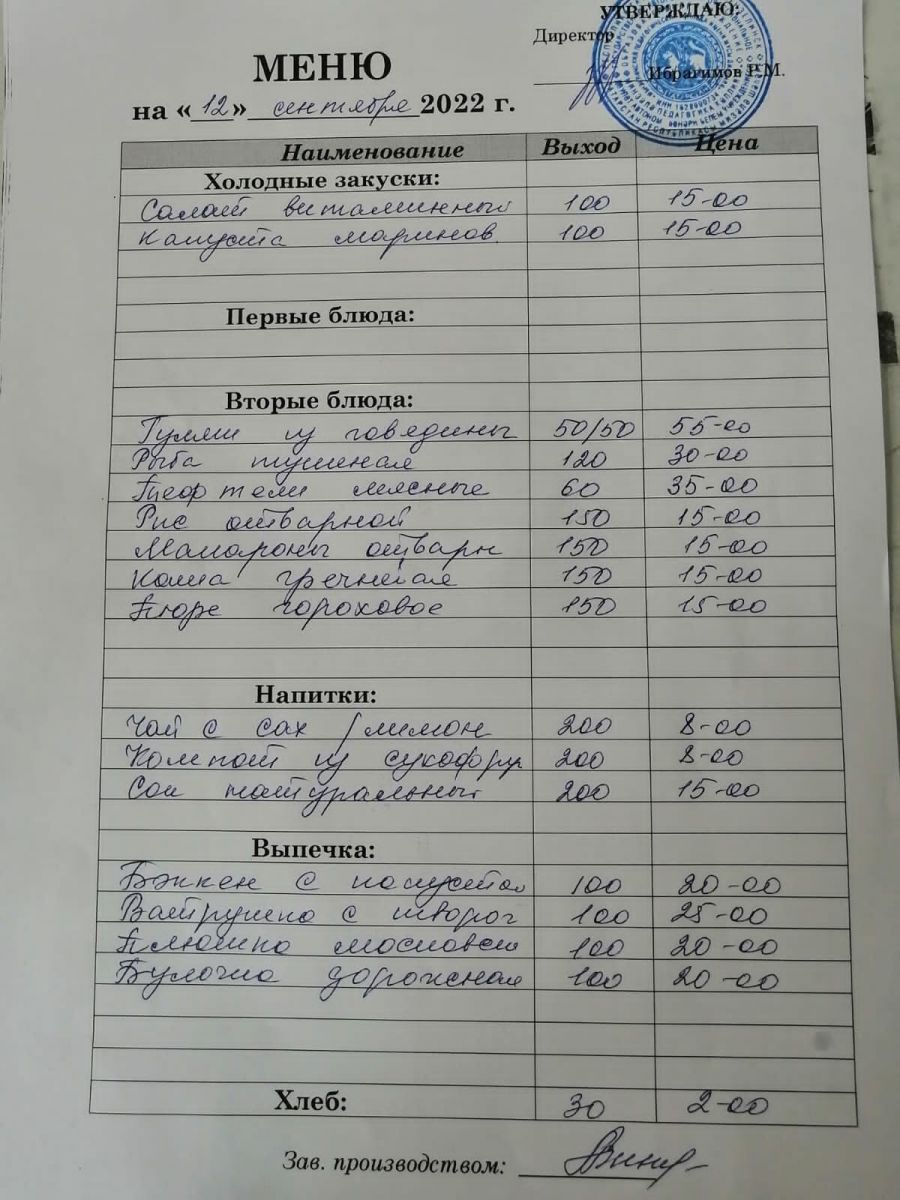 УТВЕРЖДАЮ:
Директор
Ибрагимов Р.М.
МЕНЮ
на «12» сентября 2022 г.
Наименование Выход Цена
Холодные закуски:
Салат витаминный 100 15-00
Капуста маринов. 100 15-00
Первые блюда:
Вторые блюда:
Гуляш из говядины 50/50 55-00
Рыба тушеная 120 30-00
Тефтели мясные 60 35-00
Рис отварной 150 15-00
Макароны отварн 150 15-00
Каша гречневая 150 15-00
Пюре гороховое 150 15-00
Напитки:
Чай с сах /лимон 200 8-00
Компот из сухофрук 200 8-00
Сок натуральный 200 15-00
Выпечка:
Бэккен с капустой 100 20-00
Ватрушка с творог 100 25-00
Плюшка московск 100 20-00
Булочка дорожная 100 20-00
Хлеб: 30 2-00
Зав. производством: